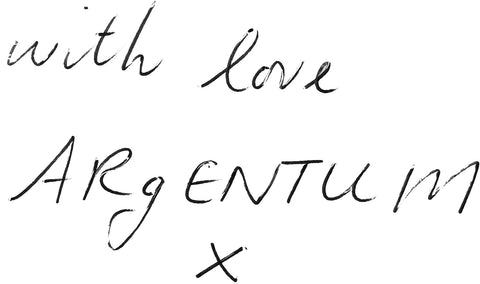 with love
ARgENTUM
x